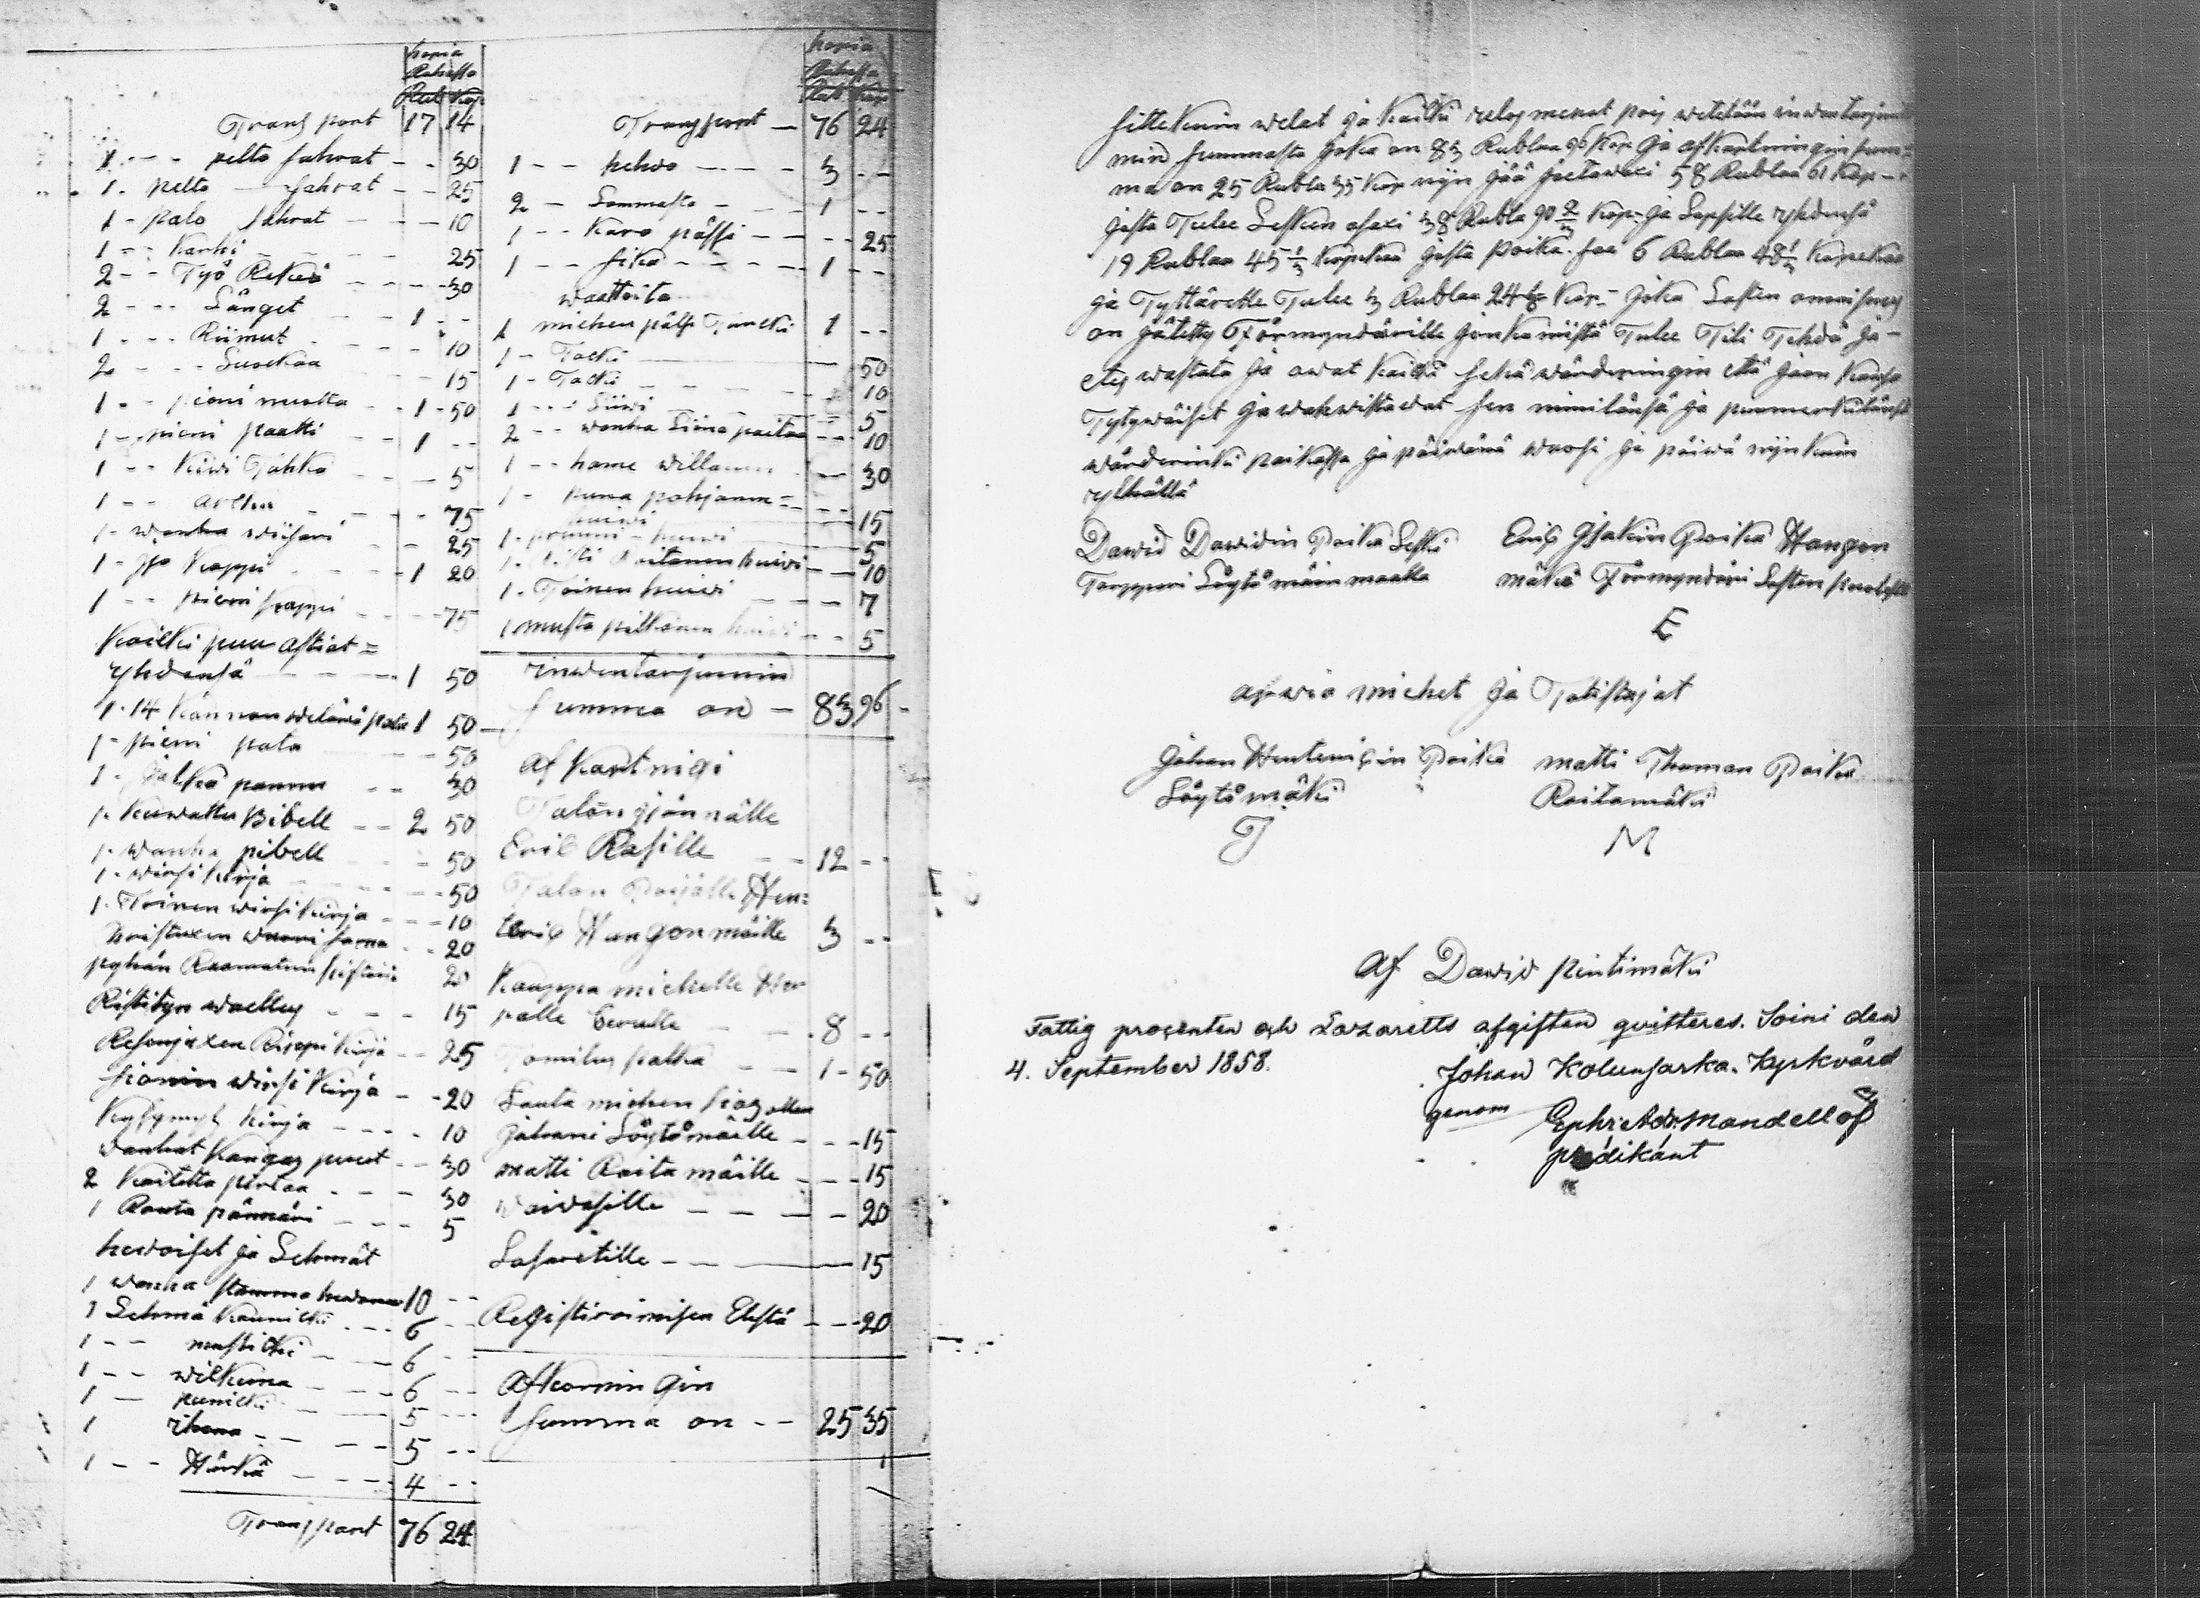 hopia
Rahassa
Rub Kop
Transport 17 14
1 - - - pelto sahrat - - 30
1 - pelto - sahrat - - 25
1 - palo sahrat - - - 10
1 - - Karhi - - - 25
2 - - Työ Rekiä - - - 30
2 - - - Sänget - - - 1 - -
1 - - - Riimut - - - 10
2 - - - Suockaa - - - 15
1 - - pieni nuotta - - 1 - 50
1 - pieni paatti - - 1 - -
1 - - Kiwi Tahko - - - 5
1 - - arkku - - - 75
1 - wanha wiisari - - 25
1 - Iso Kappi - - - 1 20
1 - - pieni kappi - - - 75
Kaikki puu astiat =
yhdensä - - - 1 50
1 - 14 Kannun wetäwä pata 1 50
1 - pieni pata - - 50
1 - jalka pannu - - 30
1 - Kuwattu Bibell - - 2 50
1 - wanha pibell - - 50
1 - wirsi kirja - - - 50
1 - Toinen wirsi kirja - - - 10
huistuxen wuori sarna - - 20
pyhän Raamatun histori 20
Ristityn waellus - - - 15
Rehonjaxen Rippi Kirja - - 25
sionin wirsi Kirja - - 20
Kysymys Kirja - - - 10
wanhat Kangas puut - - 30
2 Kaitetta pirtaa - - - 30
1 Rauta pännäri - - - 5
hewoiset ja Lehmät
1 wanha tamma hewonen 10 - -
1 Lehmä Kaunikki - - - 6 - -
1 - - mustikki - - 6 - -
1 - - wilkuna - - - 6 - -
1 - punikki - - - 5 - - -
1 ihana - - - 5 - -
1 - - Härkä - - - 4 - -
Transport 76 24
hopia
Rahassa
Rub Kop
Transport - 76 24
1 - - hehwo - - - 3 - -
2 - Lammasta - - 1 - -
1 - - Karo pässi - - - 25
1 - - sika - - - 1 - -
waatteita
1 miehen pält Turcki 1 - -
1 - Tacki - - 50
1 - Tacki - - - 10
1 - - - Liiwi - - - 5
2 - - wanha Liina paitaa - - 10
1 - - hame willanen - - 30
1 - puna pohjanen =
huiwi - - - 15
1 - pruuni - huiwi - - 5
1 - Risti Raitanen huiwi - - 10
1 - Toinen huiwi - - - 7
1 musta pilkanen huiwi - - 5
inwentarjumin
summa on - 83 96 -
Af Kortnigi
Talon isännälle
Eric Rasille - - 12 - -
Talon Poijalle Hen=
teric Hangonmäille 3 - -
Kauppa miehelle Her
ralle - - - 8 - -
Tomitus palka - - 1 - 50
Lauta miehen sias ollen
Johani Löytömäelle - - - 15
matti Raita mäille - - - 15
waiwasille - - - - 20
Lasaretille - - - 15
Registiroimisen Edestä - - - 20
Afkorningin
summa on - - 25 35
sittekuin welat ja kaikki ulos menot pois wetetään inwentarjumi
min summasta joka on 83 Rublaa 96 Kop ja afkortningin sum=
ma on 25 Rubla 35 Kop niin jää jaetawaxi 58 Rublaa 61 Kop -
josta Tulee Lesken osaxi 38 Rubla 90 2/3 Kop ja Lapsille yhdensä
19 Rublaa 45 1/3 Kopekaa josta poika saa 6 Rublaa 48 1/3 Kopekaa
ja Tyttärelle Tulee 3 Rublaa 24 Kop - joka Lasten omaisuus
on jätetty Förmyndärille jonka niistä Tulee Tili Tehdä ja -
Edes wastata ja owat kaikki sekä wärderingin että jaon kansa
Tytywäiset ja wahwistawat sen nimilänsä ja puumerkilänsä
wärderinki paikassa ja päiwänä wuosi ja päiwä niinkuin
ylhällä
Dawid Dawidin Poika Leski
Torppari Löytömäin maalla
Eric Isakin Poika Hangon
mäkiä Förmyndäri Lasten puolesta
E
arwio miehet ja Todistajat
Johan Hentericin Poika
Löytömäki
J
matti Thoman Poika
Raitamäki
M
Af Dawid Pintimäki
Fattig procenten och Lazaretts afgiften qvitteres. Soini den
4. September 1858.
Johan Kolunsarka. Kyrkvärd
genom
Ephr: Adr. Mandellöf
predikant